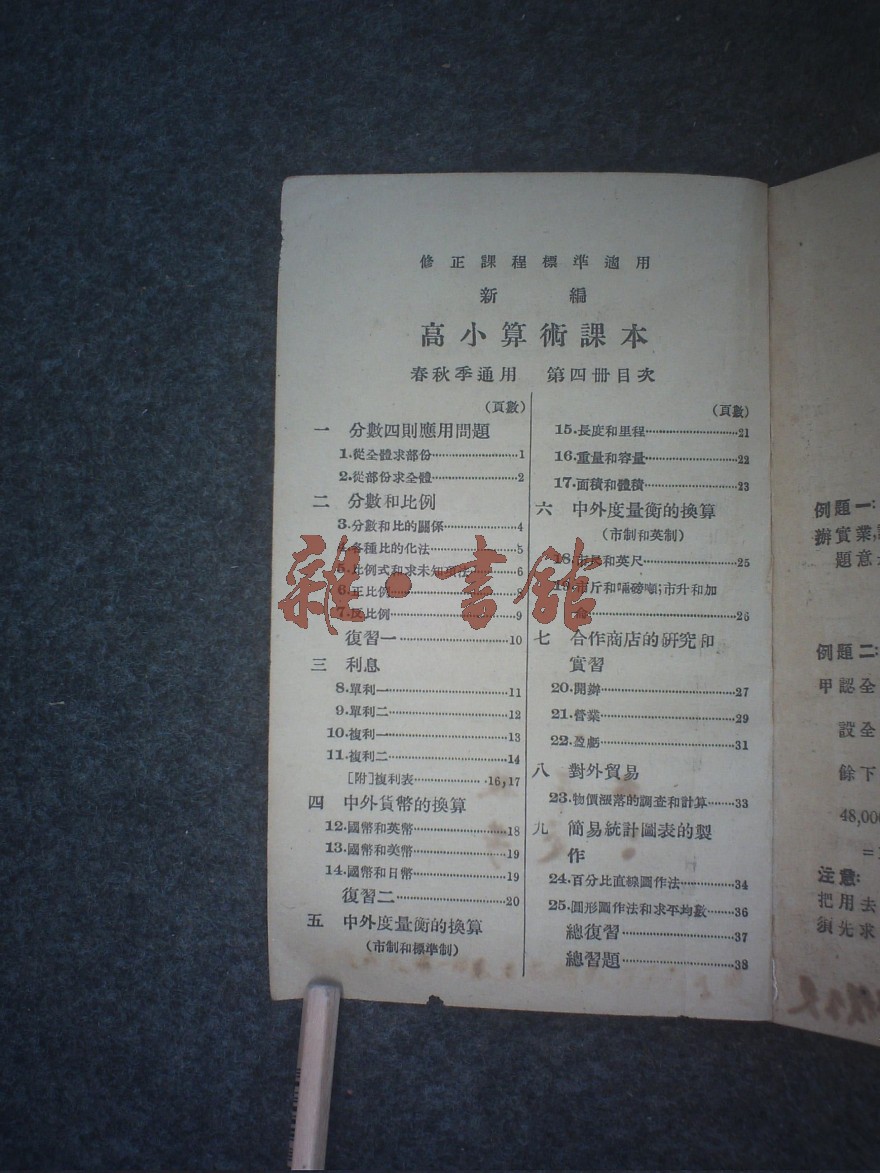 修正課程標準適用
新編
高小算術課本
春秋季通用 第四冊目次
(頁數)
一 分數四則應用問題
1.從全體求部份……1
2.從部份求全體……2
二 分數和比例
3.分數和比的關係……4
4.各種比的化法……5
5.比例式和求未知項法……6
6.正比例……8
7.反比例……9
復習一……10
三 利息
8.單利一……11
9.單利二……12
10.複利一……13
11.複利二……14
[附]複利表……16,17
四 中外貨幣的換算
12.國幣和英幣……18
13.國幣和美幣……19
14.國幣和日幣……19
復習二……20
五 中外度量衡的換算
(市制和標準制)
(頁數)
15.長度和里程……21
16.重量和容量……22
17.面積和體積……23
六 中外度量衡的換算
(市制和英制)
18.市尺和英尺……25
19.市斤和磅噸;市升和加
侖……26
七 合作商店的研究和
實習
20.開辦……27
21.營業……29
22.盈虧……31
八 對外貿易
23.物價漲落的調查和計算……33
九 簡易統計圖表的製
作
24.百分比直線圖作法……34
25.圓形圖作法和求平均數……36
總復習……37
總習題……38
雜·書館
例題一:
辦實業,
題意
例題二:
甲認全
設全
餘下
48,00
=
注意:
把用去
須先求